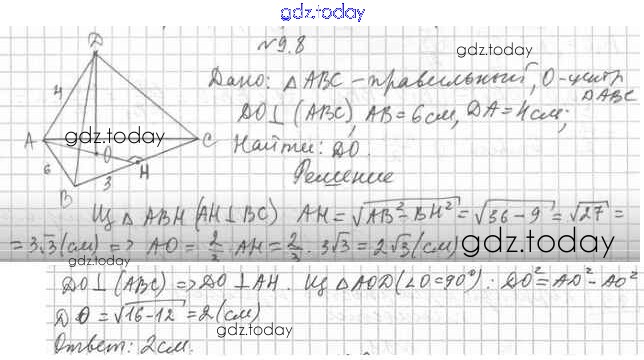 gdz.today
№9.8
gdz.today
Дано: △ABC - правильный, O - центр
△ABC
DO⊥(ABC), AB=6см, DA=4см;
Найти: DO.
Решение
D
4
A
gdz.today
O
C
6
H
B
3
Из △ABH (AH⊥BC) AH=√AB²-BH²=√36-9=√27=
=3√3(см) => AO=2/3 AH=2/3·3√3=2√3(см)
gdz.today
DO⊥(ABC) => DO⊥AH. Из △AOD(∠O=90°): DO²=AD²-AO²
gdz.today
DO=√16-12=2(см)
gdz.today
Ответ: 2см.